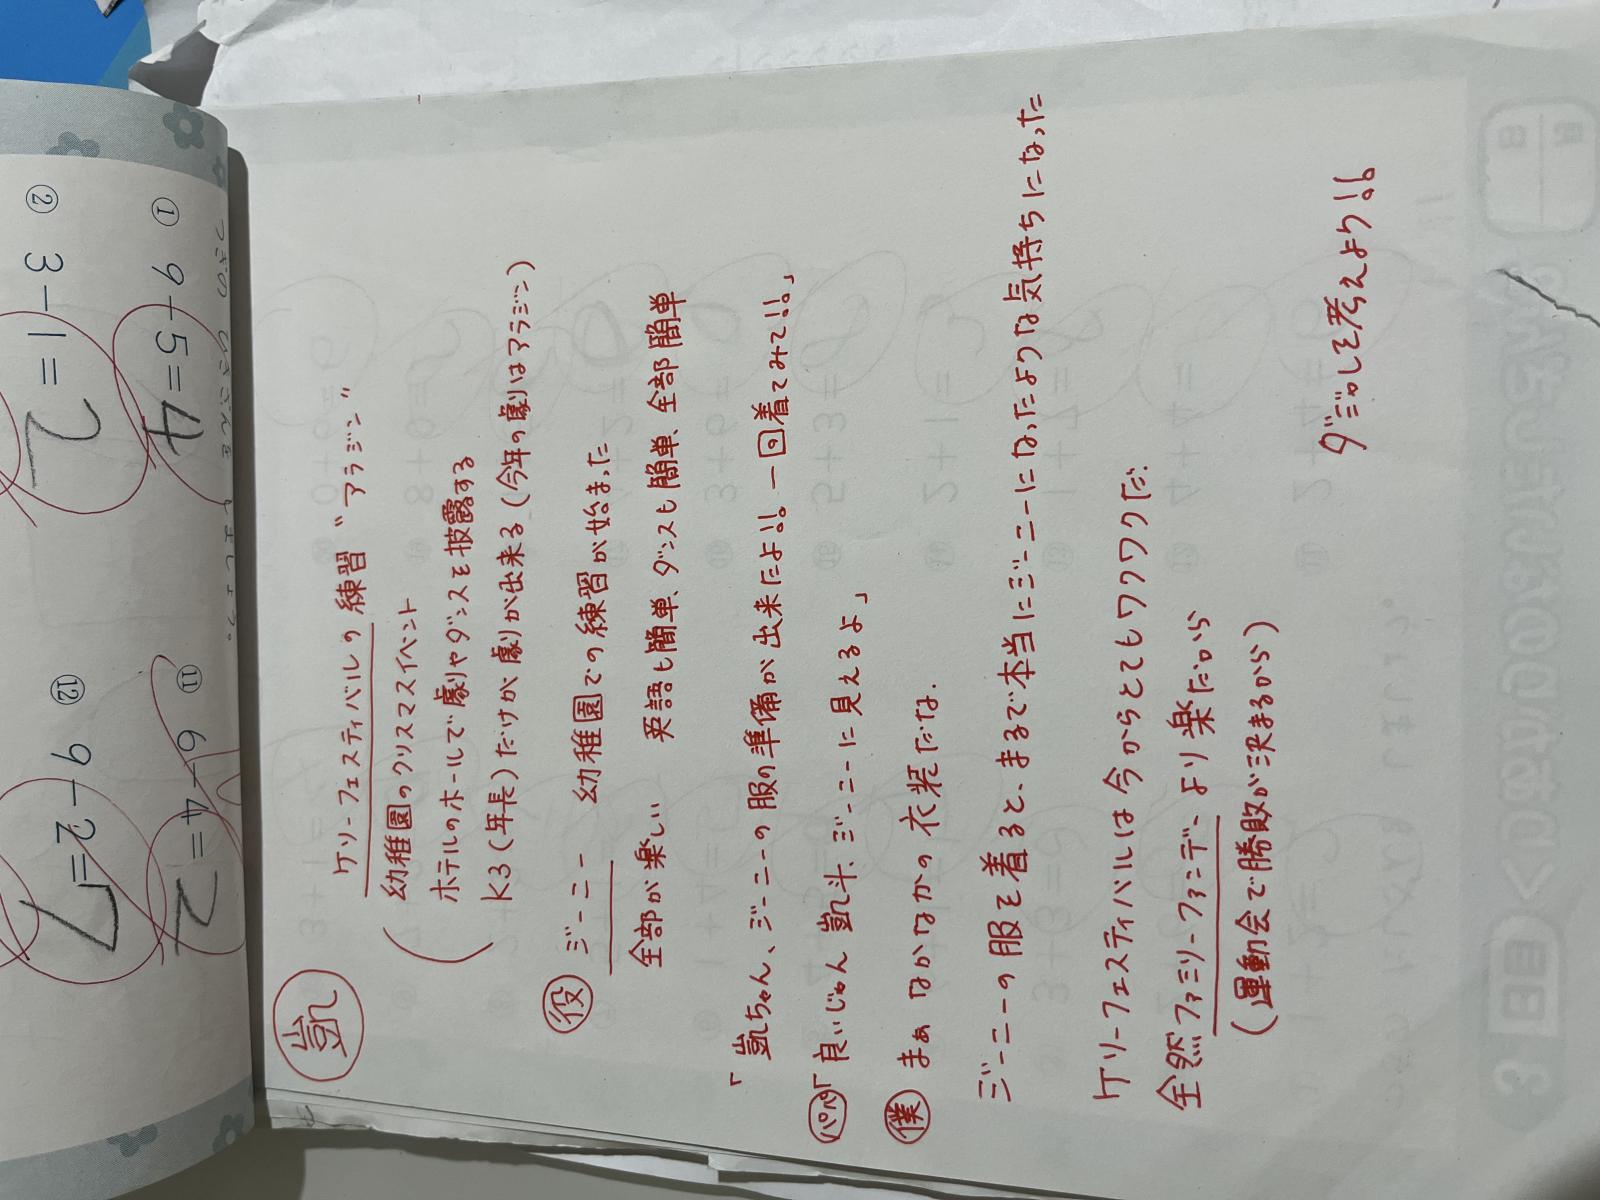 凱
ケリーフェスティバルの練習 "アラジン"
幼稚園のクリスマスイベント
ホテルのホールで劇やダンスを披露する
K3(年長)だけが劇が出来る(今年の劇はアラジン)
役 ジーニー 幼稚園での練習が始まった
全部が楽しい 英語も簡単、ダンスも簡単、全部簡単
「凱ちゃん、ジーニーの服の準備が出来たよ!! 一回着てみて!!」
パパ「良いじゃん 凱斗、ジーニーに見えるよ」
僕 まぁ なかなかの衣装だな.
ジーニーの服を着ると、まるで本当にジーニーになったような気持ちになった
ケリーフェスティバルは今からとてもワクワクだ.
全然ファミリーファンデーより楽だから
(運動会で勝敗が決まるから)
ダジャレを考えよう!!
つぎの ひきざんを しましょう。
① 9-5=4
② 3-1=2
⑪ 6-4=2
⑫ 9-2=7